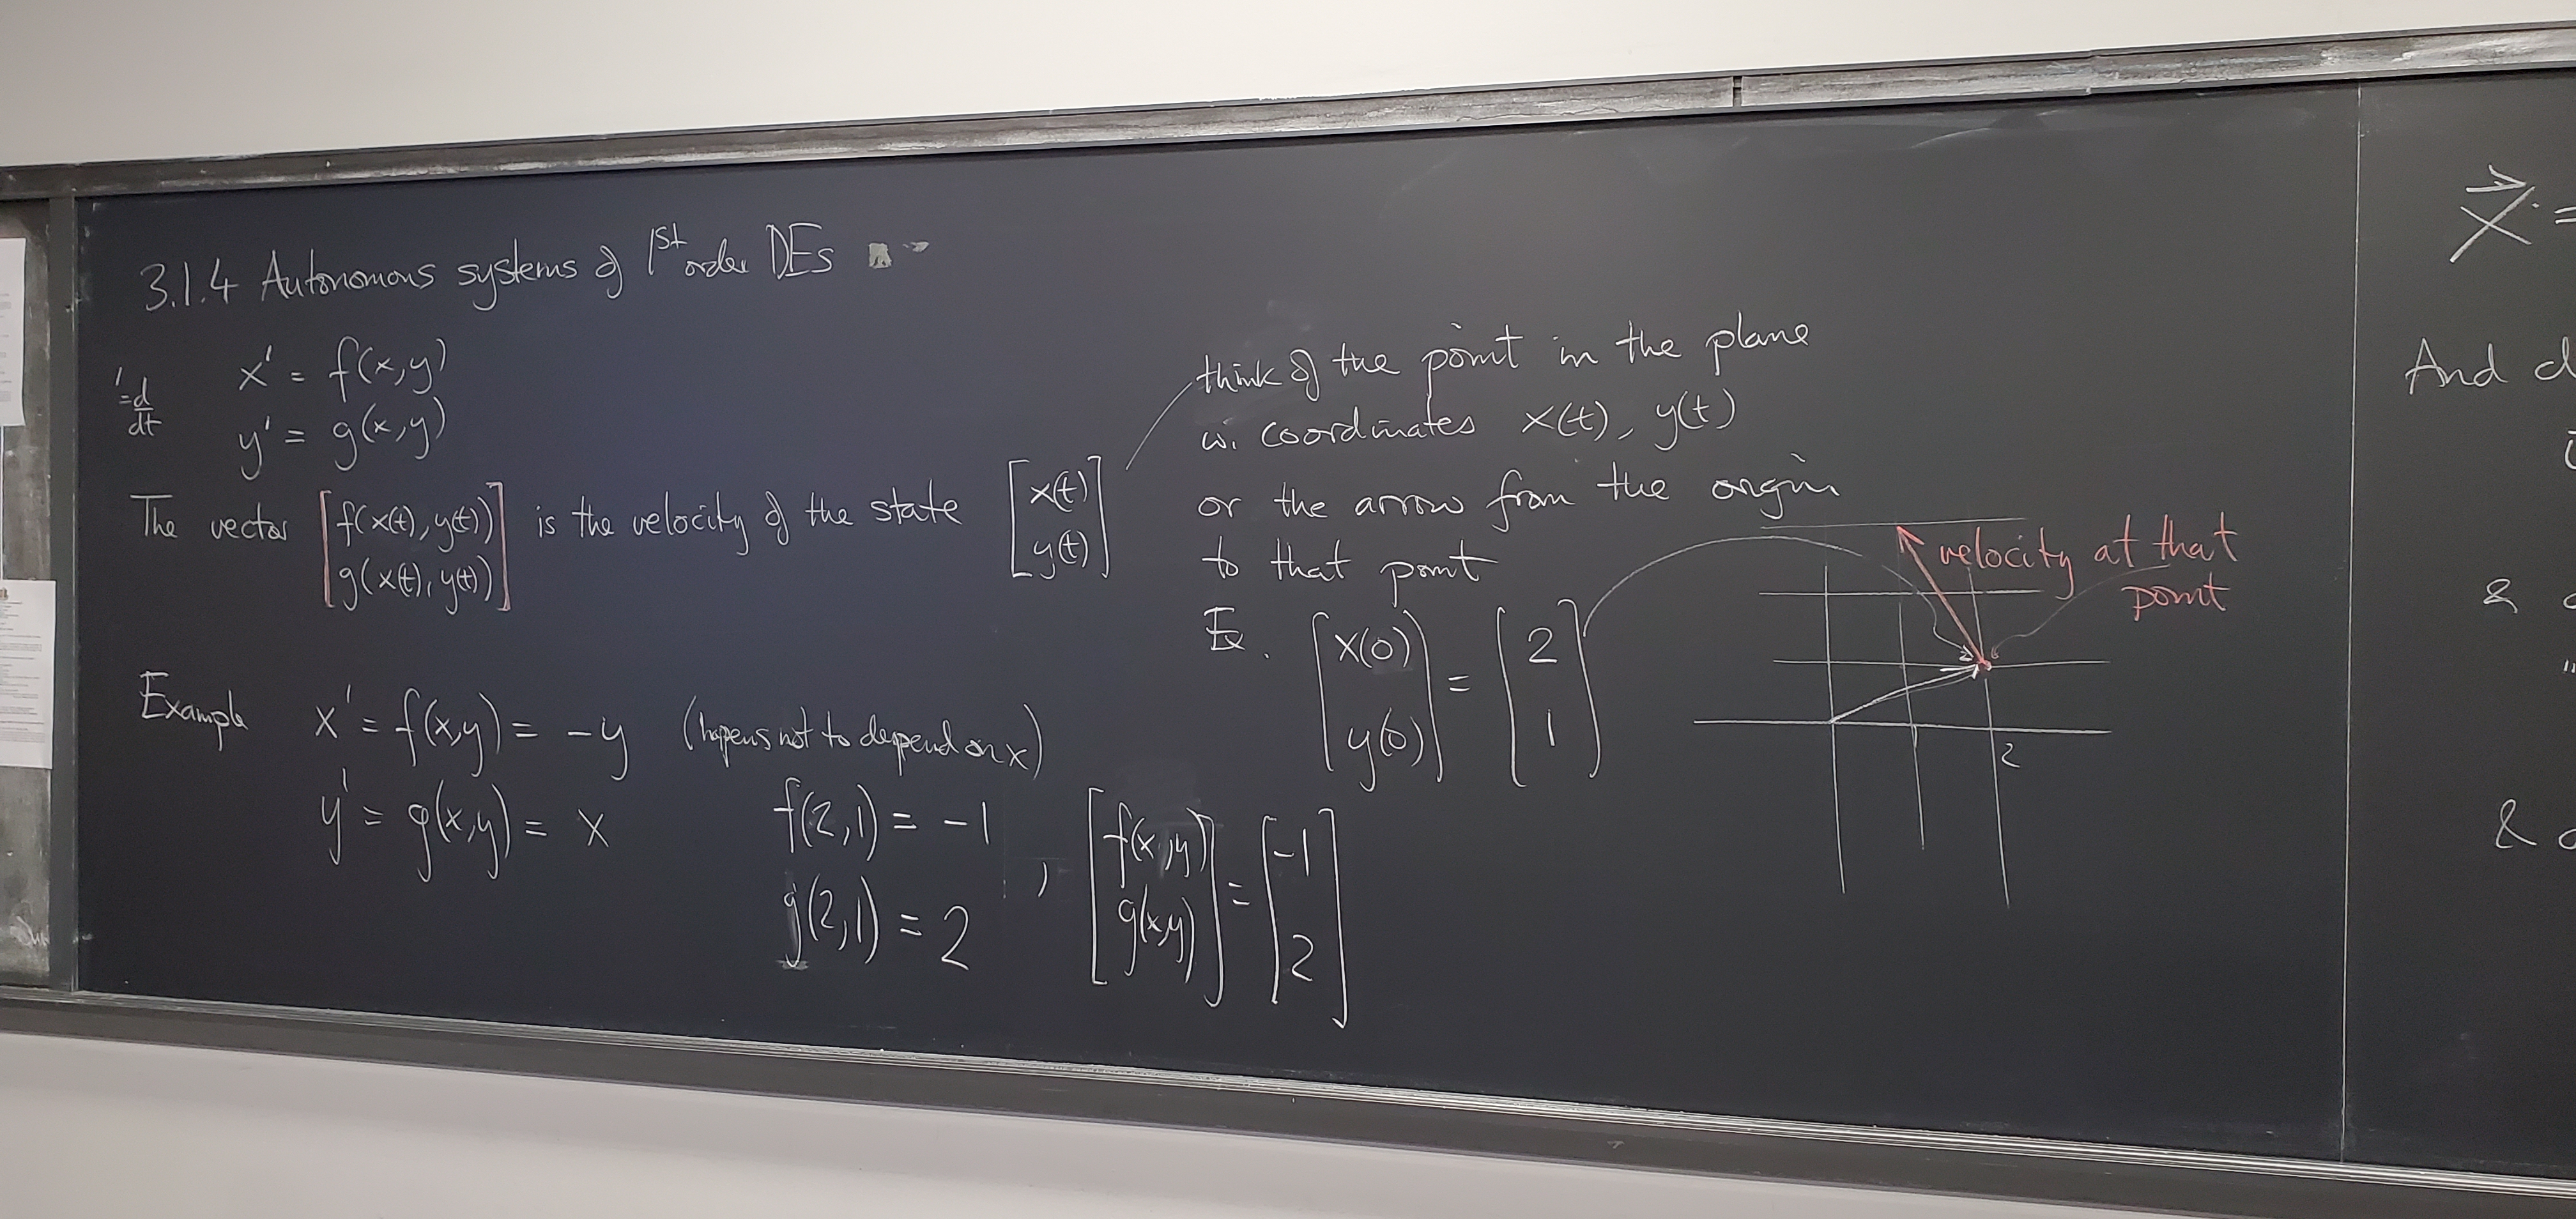 3.1.4 Autonomous systems of 1st order DEs
' = d/dt
x' = f(x,y)
y' = g(x,y)
The vector [f(x(t), y(t)) g(x(t), y(t))] is the velocity of the state [x(t) y(t)]
think of the point in the plane
w. coordinates x(t), y(t)
or the arrow from the origin
to that point
Ex. [x(0) y(0)] = [2 1]
velocity at that
point
2
Example x' = f(x,y) = -y (hapens not to depend on x)
y' = g(x,y) = x
f(2,1) = -1
g(2,1) = 2
, [f(x,y) g(x,y)] = [-1 2]
x⃗ =
And
&
&